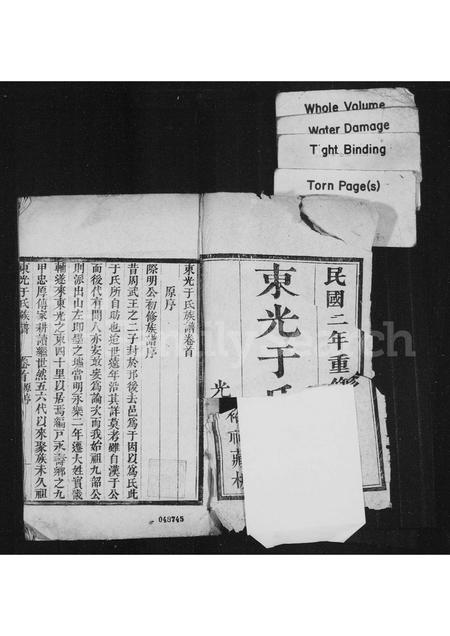 Whole Volume
Water Damage
Tight Binding
Torn Page(s)
民國二年重修
東光于氏
光
東光于氏族譜卷首
原序
際明公初修族譜序
昔周武王之二子封於邘後去邑為于因以為氏此
于氏所自昉也迨世遠年沿其詳莫考雖自漢于公
而後代有聞人亦安敢妄為論次而我始祖九韶公
則派出山左即墨之墟當明永樂二年遷大姓實畿
輔遂來東光之東四十里以居焉編戶永壽鄉之九
甲忠厚傳家耕讀繼世然五六代以來聚族未久祖
東光于氏族譜 卷首原序
048745